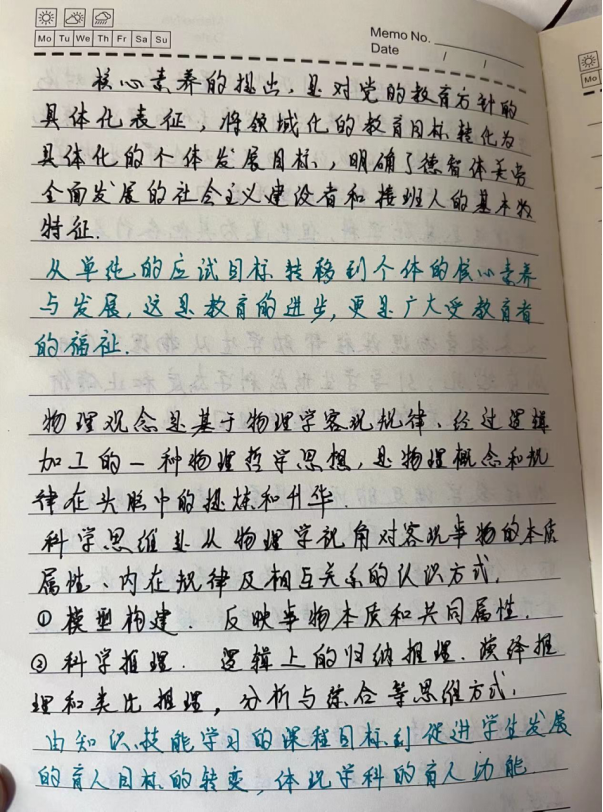 Mo Tu We Th Fr Sa Su
Memo No.
Date / /
Mo
核心素养的提出，是对党的教育方针的
具体化表征，将领域化的教育目标转化为
具体化的个体发展目标，明确了德智体美劳
全面发展的社会主义建设者和接班人的基本
特征.
从单纯的应试目标转移到个体的核心素养
与发展，这是教育的进步，更是广大受教育者
的福祉.
物理观念是基于物理学客观规律、经过逻辑
加工的一种物理哲学思想，是物理概念和规
律在头脑中的提炼和升华.
科学思维是从物理学视角对客观事物的本质
属性、内在规律及相互关系的认识方式.
①模型构建. 反映事物本质和共同属性.
②科学推理. 逻辑上的归纳推理、演绎推
理和类比推理，分析与综合等思维方式.
由知识技能学习的课程目标到促进学生发展
的育人目标的转变，体现学科的育人功能.